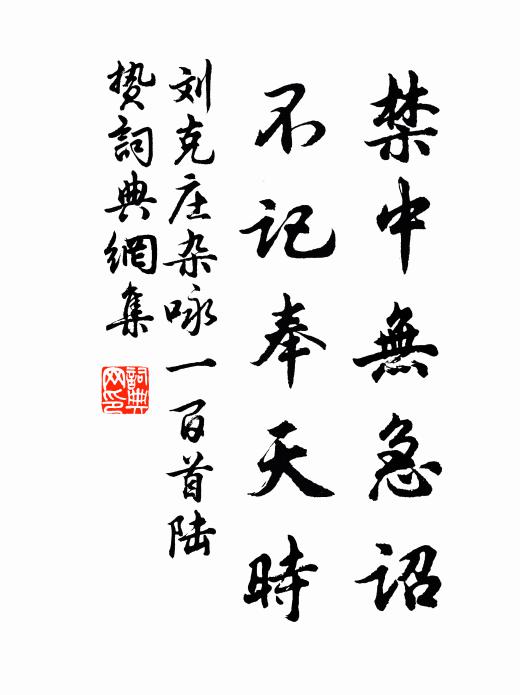 禁中無急詔
不記奉天時
刘克庄杂咏一百首陆
贽詞典網集
詞典
网印